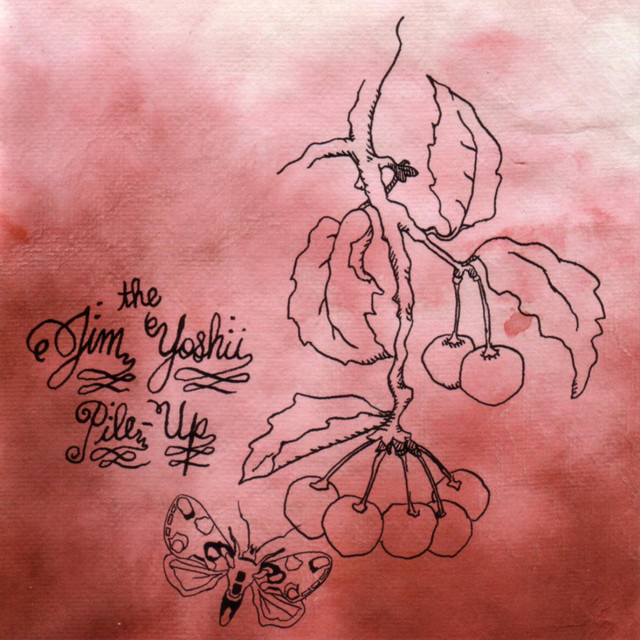 the
Jim Yoshii
Pile-Up